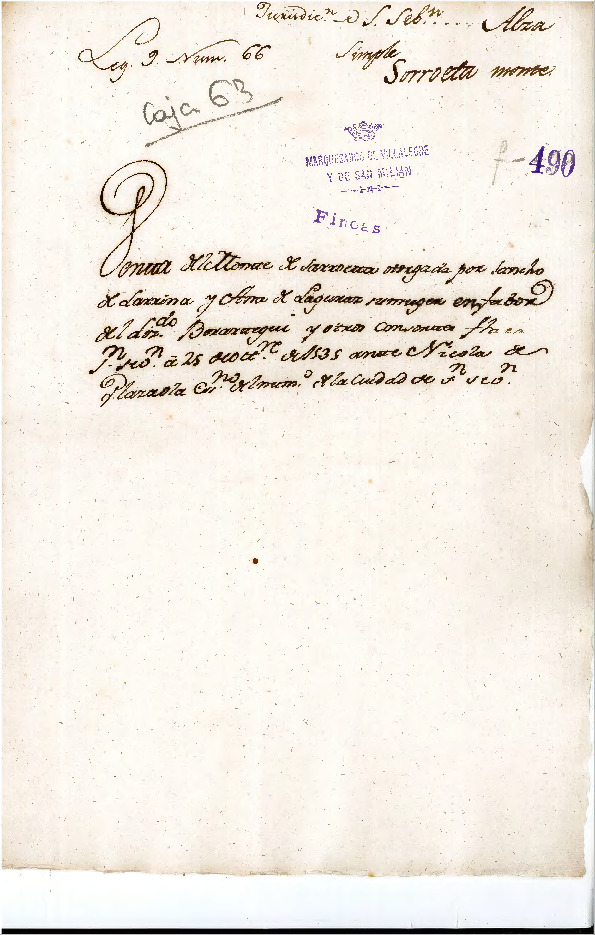 Jurisdic.n d S. Seb.n .... Alza
Leg. 9. Num. 66 Simple
Sorroeta monte.
Caja 63
MARQUESADOS DE VILLALEGRE
Y DE SAN MILLAN
f-490
Fincas
Venta del Monte de Sarroeta otorgada por Sancho
de Larrina y de su muger en fabor
del liz.do y otro consorte
S.n Seb.n à 25 de oct.re de 1535 ante Nicolas de
Plazaola Es.no del num.o de la Ciudad de S.n Seb.n.